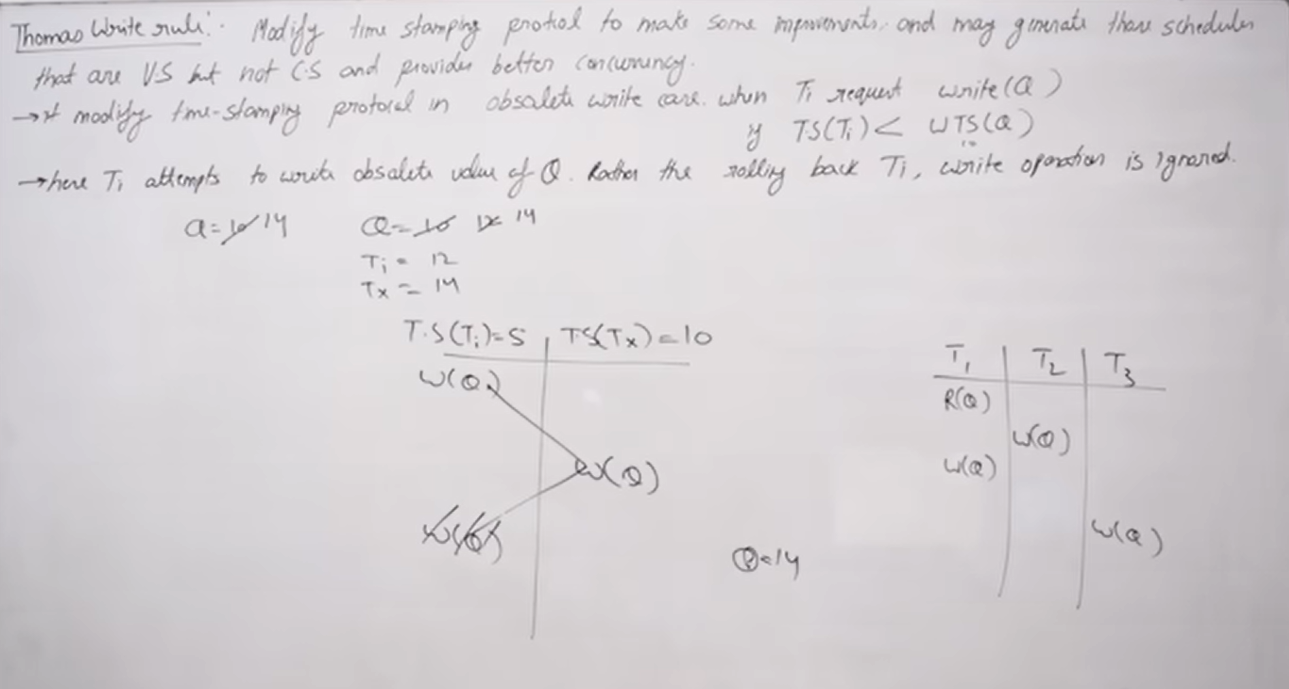 Thomas Write rule:- Modify time stamping protocol to make some improvements. and may generate those schedules
that are V.S but not C.S and provides better concurrency.
→ It modify time-stamping protocol in obsalete write case. when Ti request write(Q)
if TS(Ti) < WTS(Q)
10
→ here Ti attempts to write obsalete value of Q. Rather the rolling back Ti, write operation is ignored.
a = 10 14 Q = 10 12 14
Ti = 12
Tx = 14
T.S(Ti)=5 T.S(Tx)=10
W(Q)
W(Q)
W(Q)
Q=14
T1 T2 T3
R(Q)
W(Q)
W(Q)
W(Q)